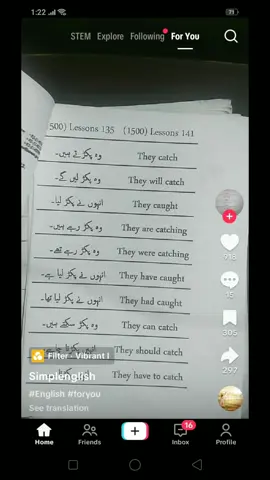 1:22
STEM Explore Following For You
(1500) Lessons 135 (1500) Lessons 141
وہ پکڑتے ہیں۔ They catch
وہ پکڑ لیں گے۔ They will catch
انہوں نے پکڑ لیا۔ They caught
وہ پکڑ رہے ہیں۔ They are catching
وہ پکڑ رہے تھے۔ They were catching
انہوں نے پکڑ لیا ہے۔ They have caught
انہوں نے پکڑ لیا تھا۔ They had caught
وہ پکڑ سکتے ہیں۔ They can catch
They should catch
They have to catch
918
15
305
297
Filter · Vibrant I
Simplenglish
#English #foryou
See translation
16
Home Friends Inbox Profile